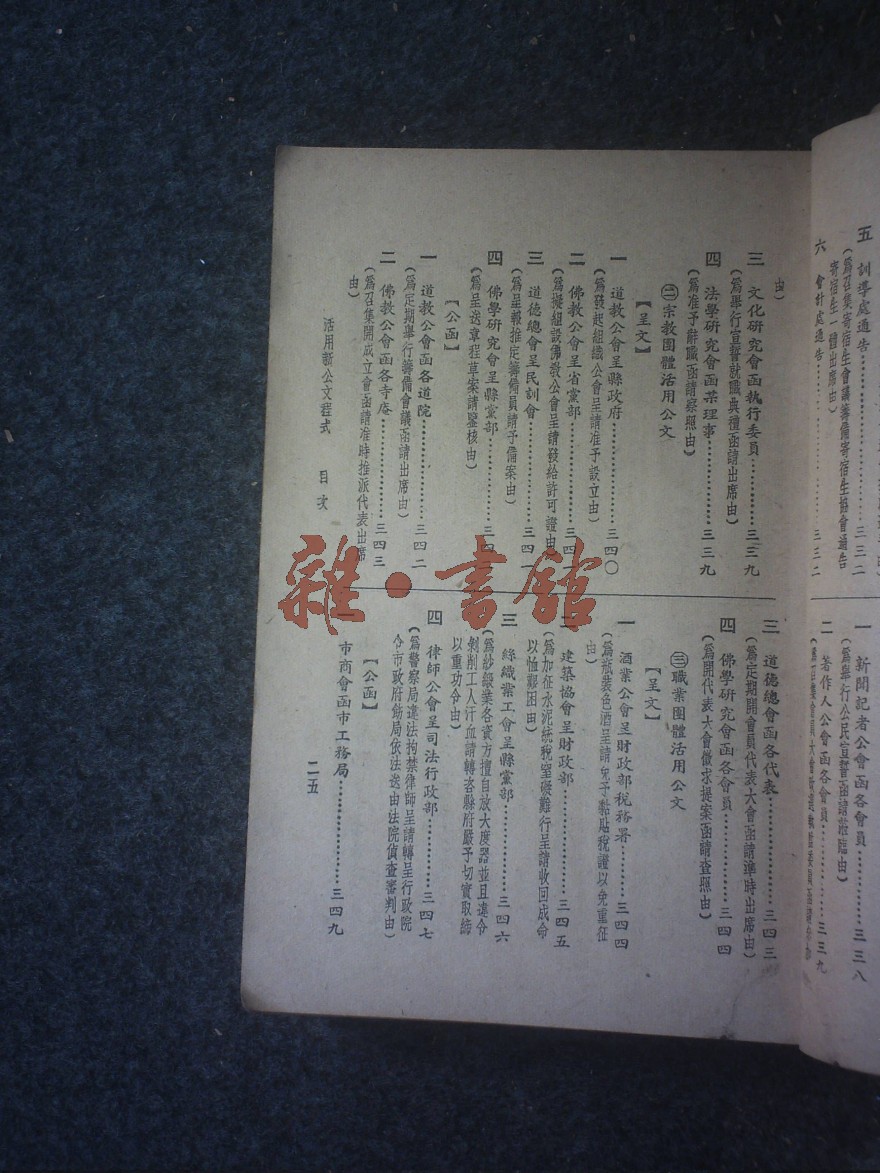 五　訓導處通告…………三三二
（爲召集寄宿生會議籌備寄宿生協會通告
寄宿生一體出席由）
六　會計處通告…………三三二
一　新聞記者公會函各會員…………三三八
（爲舉行公民宣誓函請蒞臨由）
二　著作人公會函各會員…………三三九
由）
三　文化研究會函執行委員…………三三九
（爲舉行宣誓就職典禮函請出席由）
四　法學研究會函某理事…………三三九
（爲准予辭職函請察照由）
㊁宗教團體活用公文
【呈文】
一　道教公會呈縣政府…………三四〇
（爲發起組織公會呈請准予設立由）
二　佛教公會呈省黨部…………三四
（爲擬組設佛教公會呈請發給許可證由）
三　道德總會呈民訓會…………三四一
（爲呈報推定籌備員請予備案由）
四　佛學研究會呈縣黨部…………三四
（爲呈送章程草案請鑒核由）
【公函】
一　道教公會函各道院…………三四二
（爲定期舉行籌備會議函請出席由）
二　佛教公會函各寺庵…………三四三
（爲召集開成立會函請准時推派代表出席
由）
三　道德總會函各代表…………三四三
（爲定期開會員代表大會函請準時出席由）
四　佛學研究會函各會員…………三四四
（爲開代表大會徵求提案函請查照由）
㊂職業團體活用公文
【呈文】
一　酒業公會呈財政部稅務署…………三四四
（爲瓶裝色酒呈請免予黏貼稅證以免重征
由）
二　建築協會呈財政部…………三四五
（爲加征水泥統稅窒礙難行呈請收回成命
以恤艱困由）
三　絲織業工會呈縣黨部…………三四六
（爲紗緞業各資方擅自放大度器並且違令
剝削工人汗血請轉咨縣府嚴予切實取締
以重功令由）
四　律師公會呈司法行政部…………三四七
（爲警察局違法拘禁律師呈請轉呈行政院
令市政府飭局依法送由法院偵查審判由）
【公函】
一　市商會函市工務局…………三四九
活用新公文程式　目次
二五
雜·書館